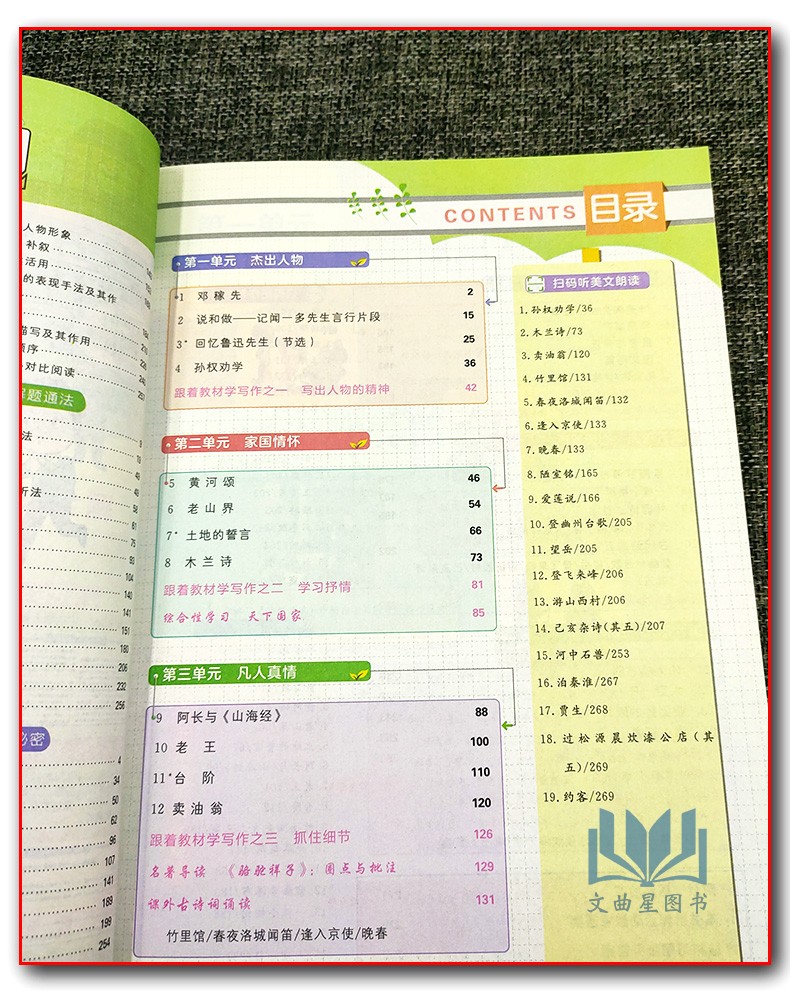 人物形象
补叙
活用
的表现手法及其作
描写及其作用
顺序
对比阅读
解题通法
法
析法
秘密
210
226
240
237
9
10
14
40
56
61
75
93
104
140
141
151
180
206
232
256
4
34
50
62
96
107
141
189
199
254
CONTENTS 目录
第一单元 杰出人物
1 邓稼先 2
2 说和做——记闻一多先生言行片段 15
3* 回忆鲁迅先生(节选) 25
4 孙权劝学 36
跟着教材学写作之一 写出人物的精神 42
第二单元 家国情怀
5 黄河颂 46
6 老山界 54
7* 土地的誓言 66
8 木兰诗 73
跟着教材学写作之二 学习抒情 81
综合性学习 天下国家 85
第三单元 凡人真情
9 阿长与《山海经》 88
10 老王 100
11* 台阶 110
12 卖油翁 120
跟着教材学写作之三 抓住细节 126
名著导读 《骆驼祥子》:圈点与批注 129
课外古诗词诵读 131
竹里馆/春夜洛城闻笛/逢入京使/晚春
扫码听美文朗读
1.孙权劝学/36
2.木兰诗/73
3.卖油翁/120
4.竹里馆/131
5.春夜洛城闻笛/132
6.逢入京使/133
7.晚春/133
8.陋室铭/165
9.爱莲说/166
10.登幽州台歌/205
11.望岳/205
12.登飞来峰/206
13.游山西村/206
14.己亥杂诗(其五)/207
15.河中石兽/253
16.泊秦淮/267
17.贾生/268
18.过松源晨炊漆公店(其
五)/269
19.约客/269
文曲星图书